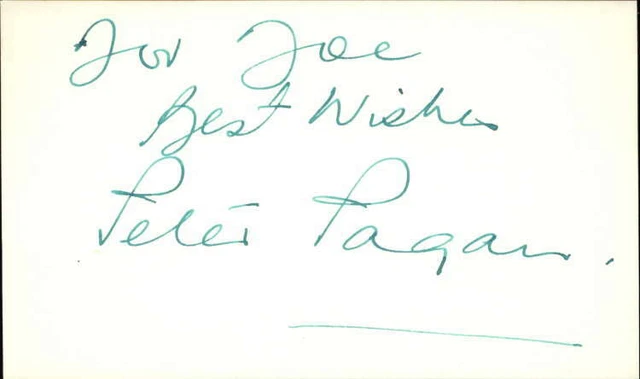 For Joe
Best Wishes
Peter Pagan.